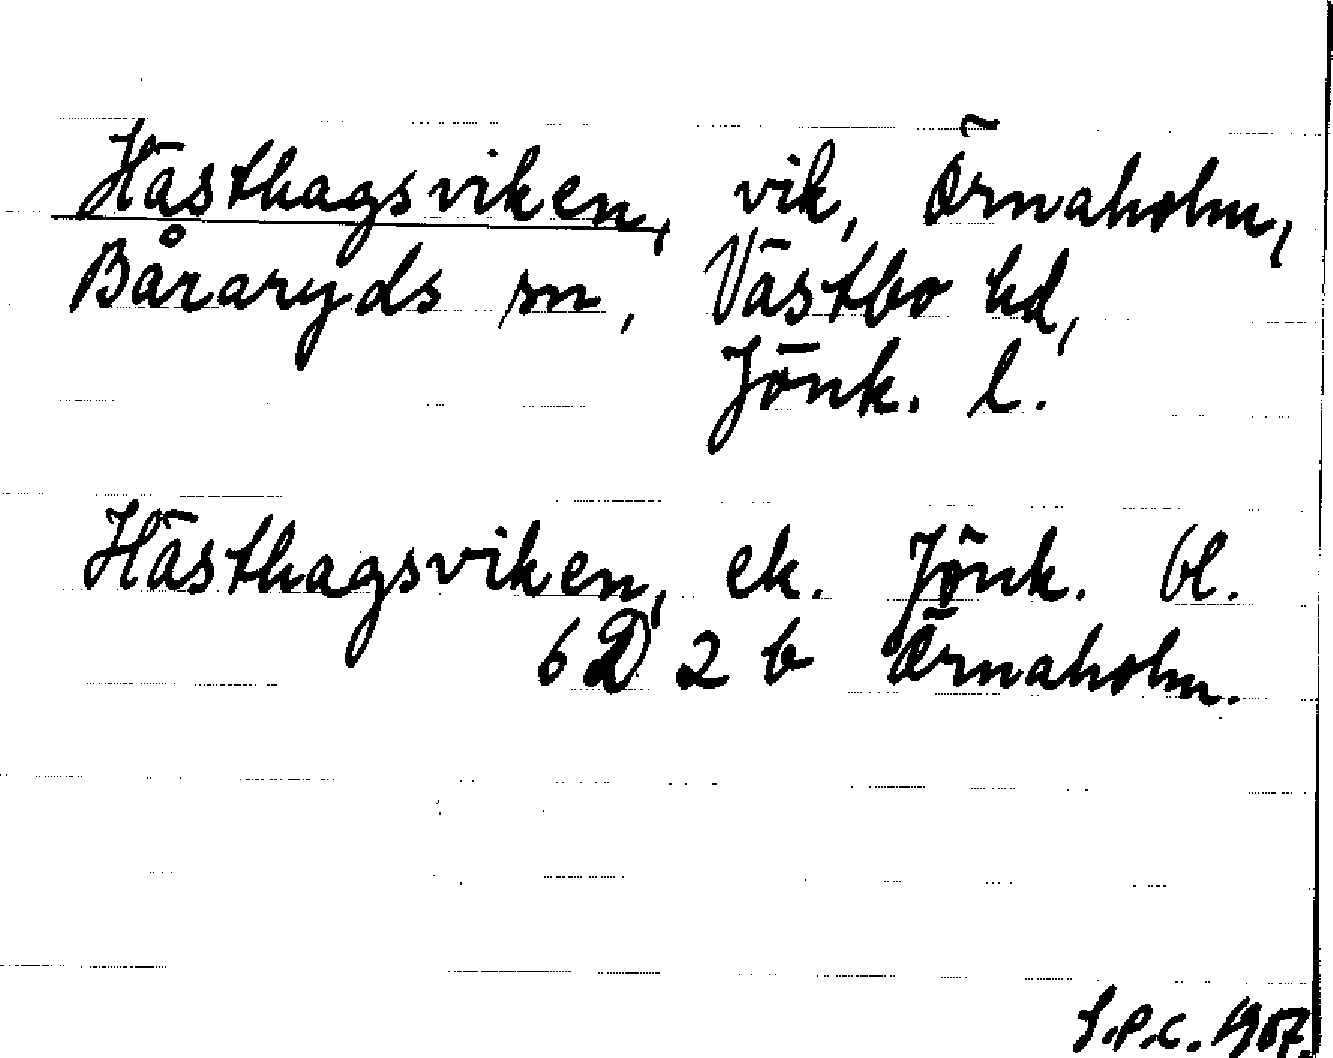 Hästhagsviken, vik, Örnaholm,
Båraryds sn, Västbo hd,
Jönk. l.
Hästhagsviken, ek. Jönk. bl.
6 D 2 b Örnaholm.
S.P.C. 1957.